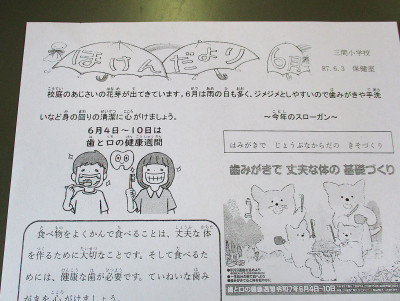 ほけんだより 6月
三間小学校
R7.6.3 保健室
校庭のあじさいの花芽が出てきています。6月は雨の日も多く、ジメジメとしやすいので歯みがきや手洗
いなど身の回りの清潔に心がけましょう。
6月4日～10日は
歯と口の健康週間
～今年のスローガン～
はみがきで じょうぶなからだの きそづくり
歯みがきで 丈夫な体の 基礎づくり
歯と口の健康週間 令和7年6月4日～10日
食べ物をよくかんで食べることは、丈夫な体
を作るために大切なことです。そして食べるた
めには、健康な歯が必要です。ていねいな歯み
がきを心がけましょう。